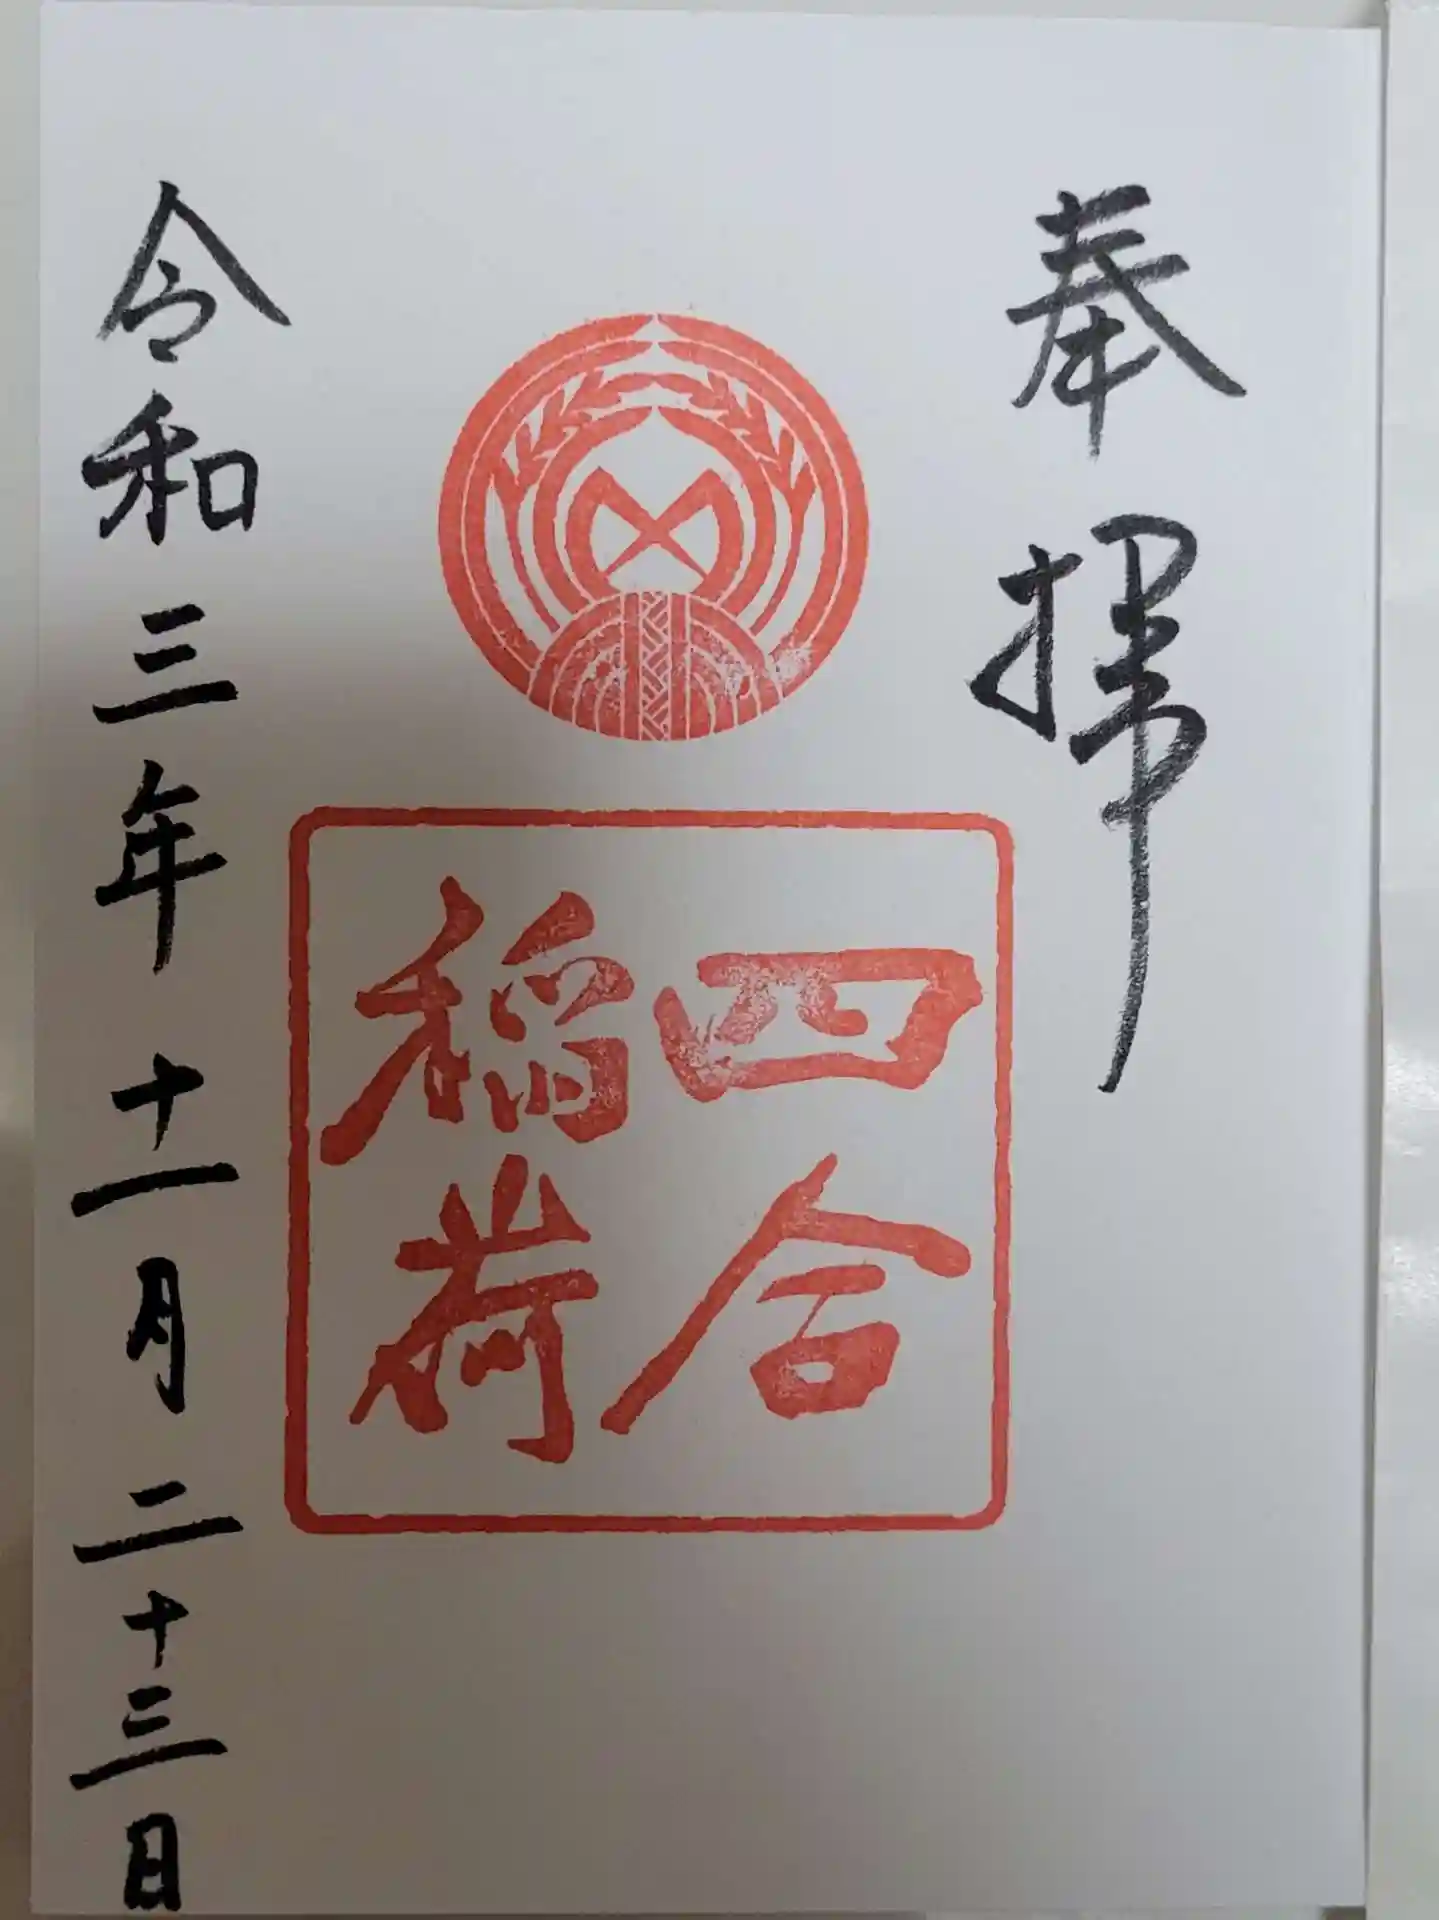 奉拝
四合
稲荷
令和三年十一月二十三日